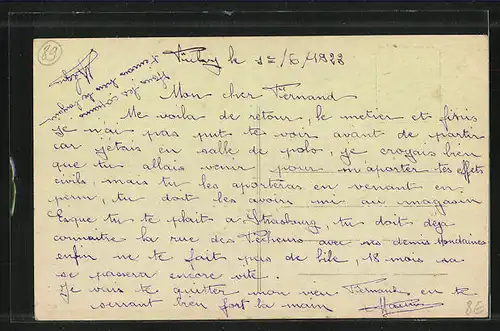 89
le 12/6/1928
Mon cher Fernand
Me voila de retour, le metier et finis
Je n'ai pas put te voir avant de partir
car j'etais en salle de polo, je croyais bien
que tu allais venir pour m'aporter tes effets
civils, mais tu les aporteras en venant en
perm, tu doit les avoirs mi au magasin
Esque tu te plait a Strasbourg, tu doit deja
connaitre la rue des Pecheurs avec ses demis-mondaines
enfin ne te fait pas de bile, 18 mois sa
se passera encore vite.
Je vais te quitter mon vieu Fernand en te
serrant bien fort la main
86